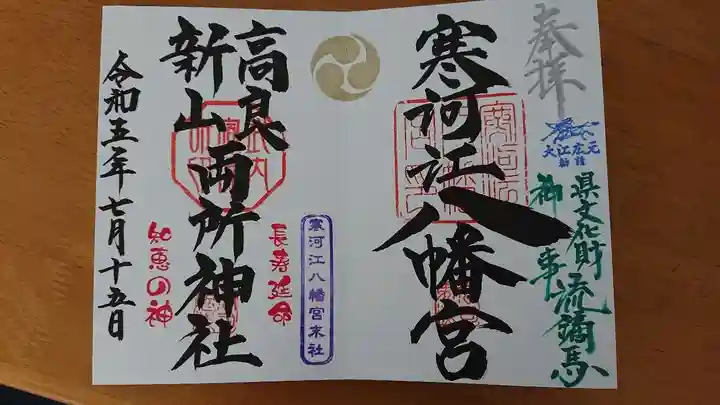 奉拝
大江広元
県文化財流鏑馬
御神事
寒河江八幡宮
寒河江八幡宮末社
長寿延命
高良
新山
両所神社
知恵の神
令和五年七月十五日